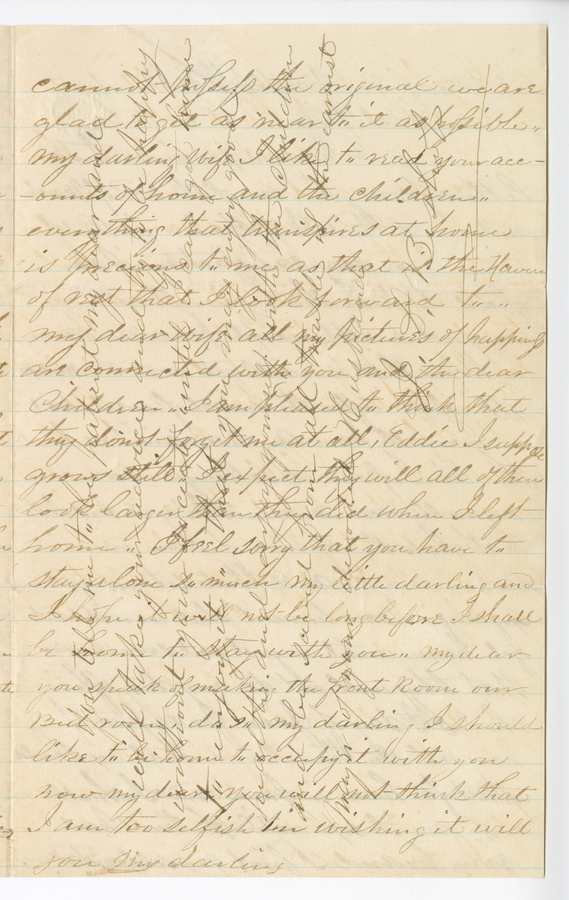 cannot possess the original we are
glad to get as near to it as possible "
my darling wife I like to read your acc-
-ounts of home and the children "
everything that transpires at home
is precious to me as that is the Haven
of rest that I look forward to " "
my dear wife all my pictures of happiness
are connected with you and the dear
Children " I am pleased to think that
they don't forget me at all, Eddie I suppose
grows still " I expect they will all of them
look larger than they did when I left
home " I feel sorry that you have to
stay alone so much my little darling and
I hope it will not be long before I shall
be home to stay with you " my dear
you speak of making the front Room our
Bed room, do so my darling I should
like to be home to occupy it with you
now my dear you will not think that
I am too selfish in wishing it will
you my darling
you tell me to be patient my dear and I
will take your advice and be happy
without
to enjoy it that you may enjoy good
health and
and be
prayer of your devoted Husband
J. B.